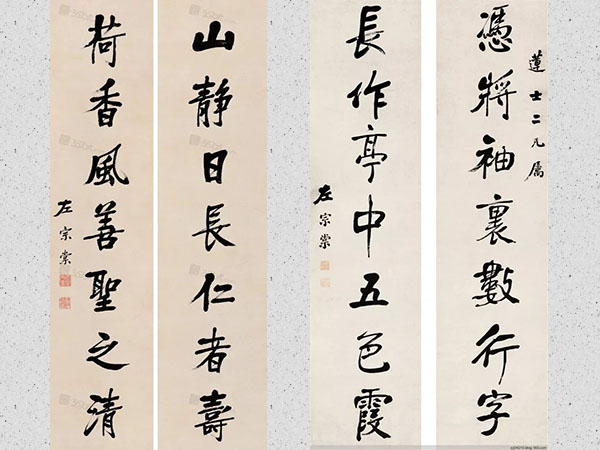 蓮士二兄屬
憑將袖裏數行字
長作亭中五色霞
左宗棠
山靜日長仁者壽
荷香風善聖之清
左宗棠